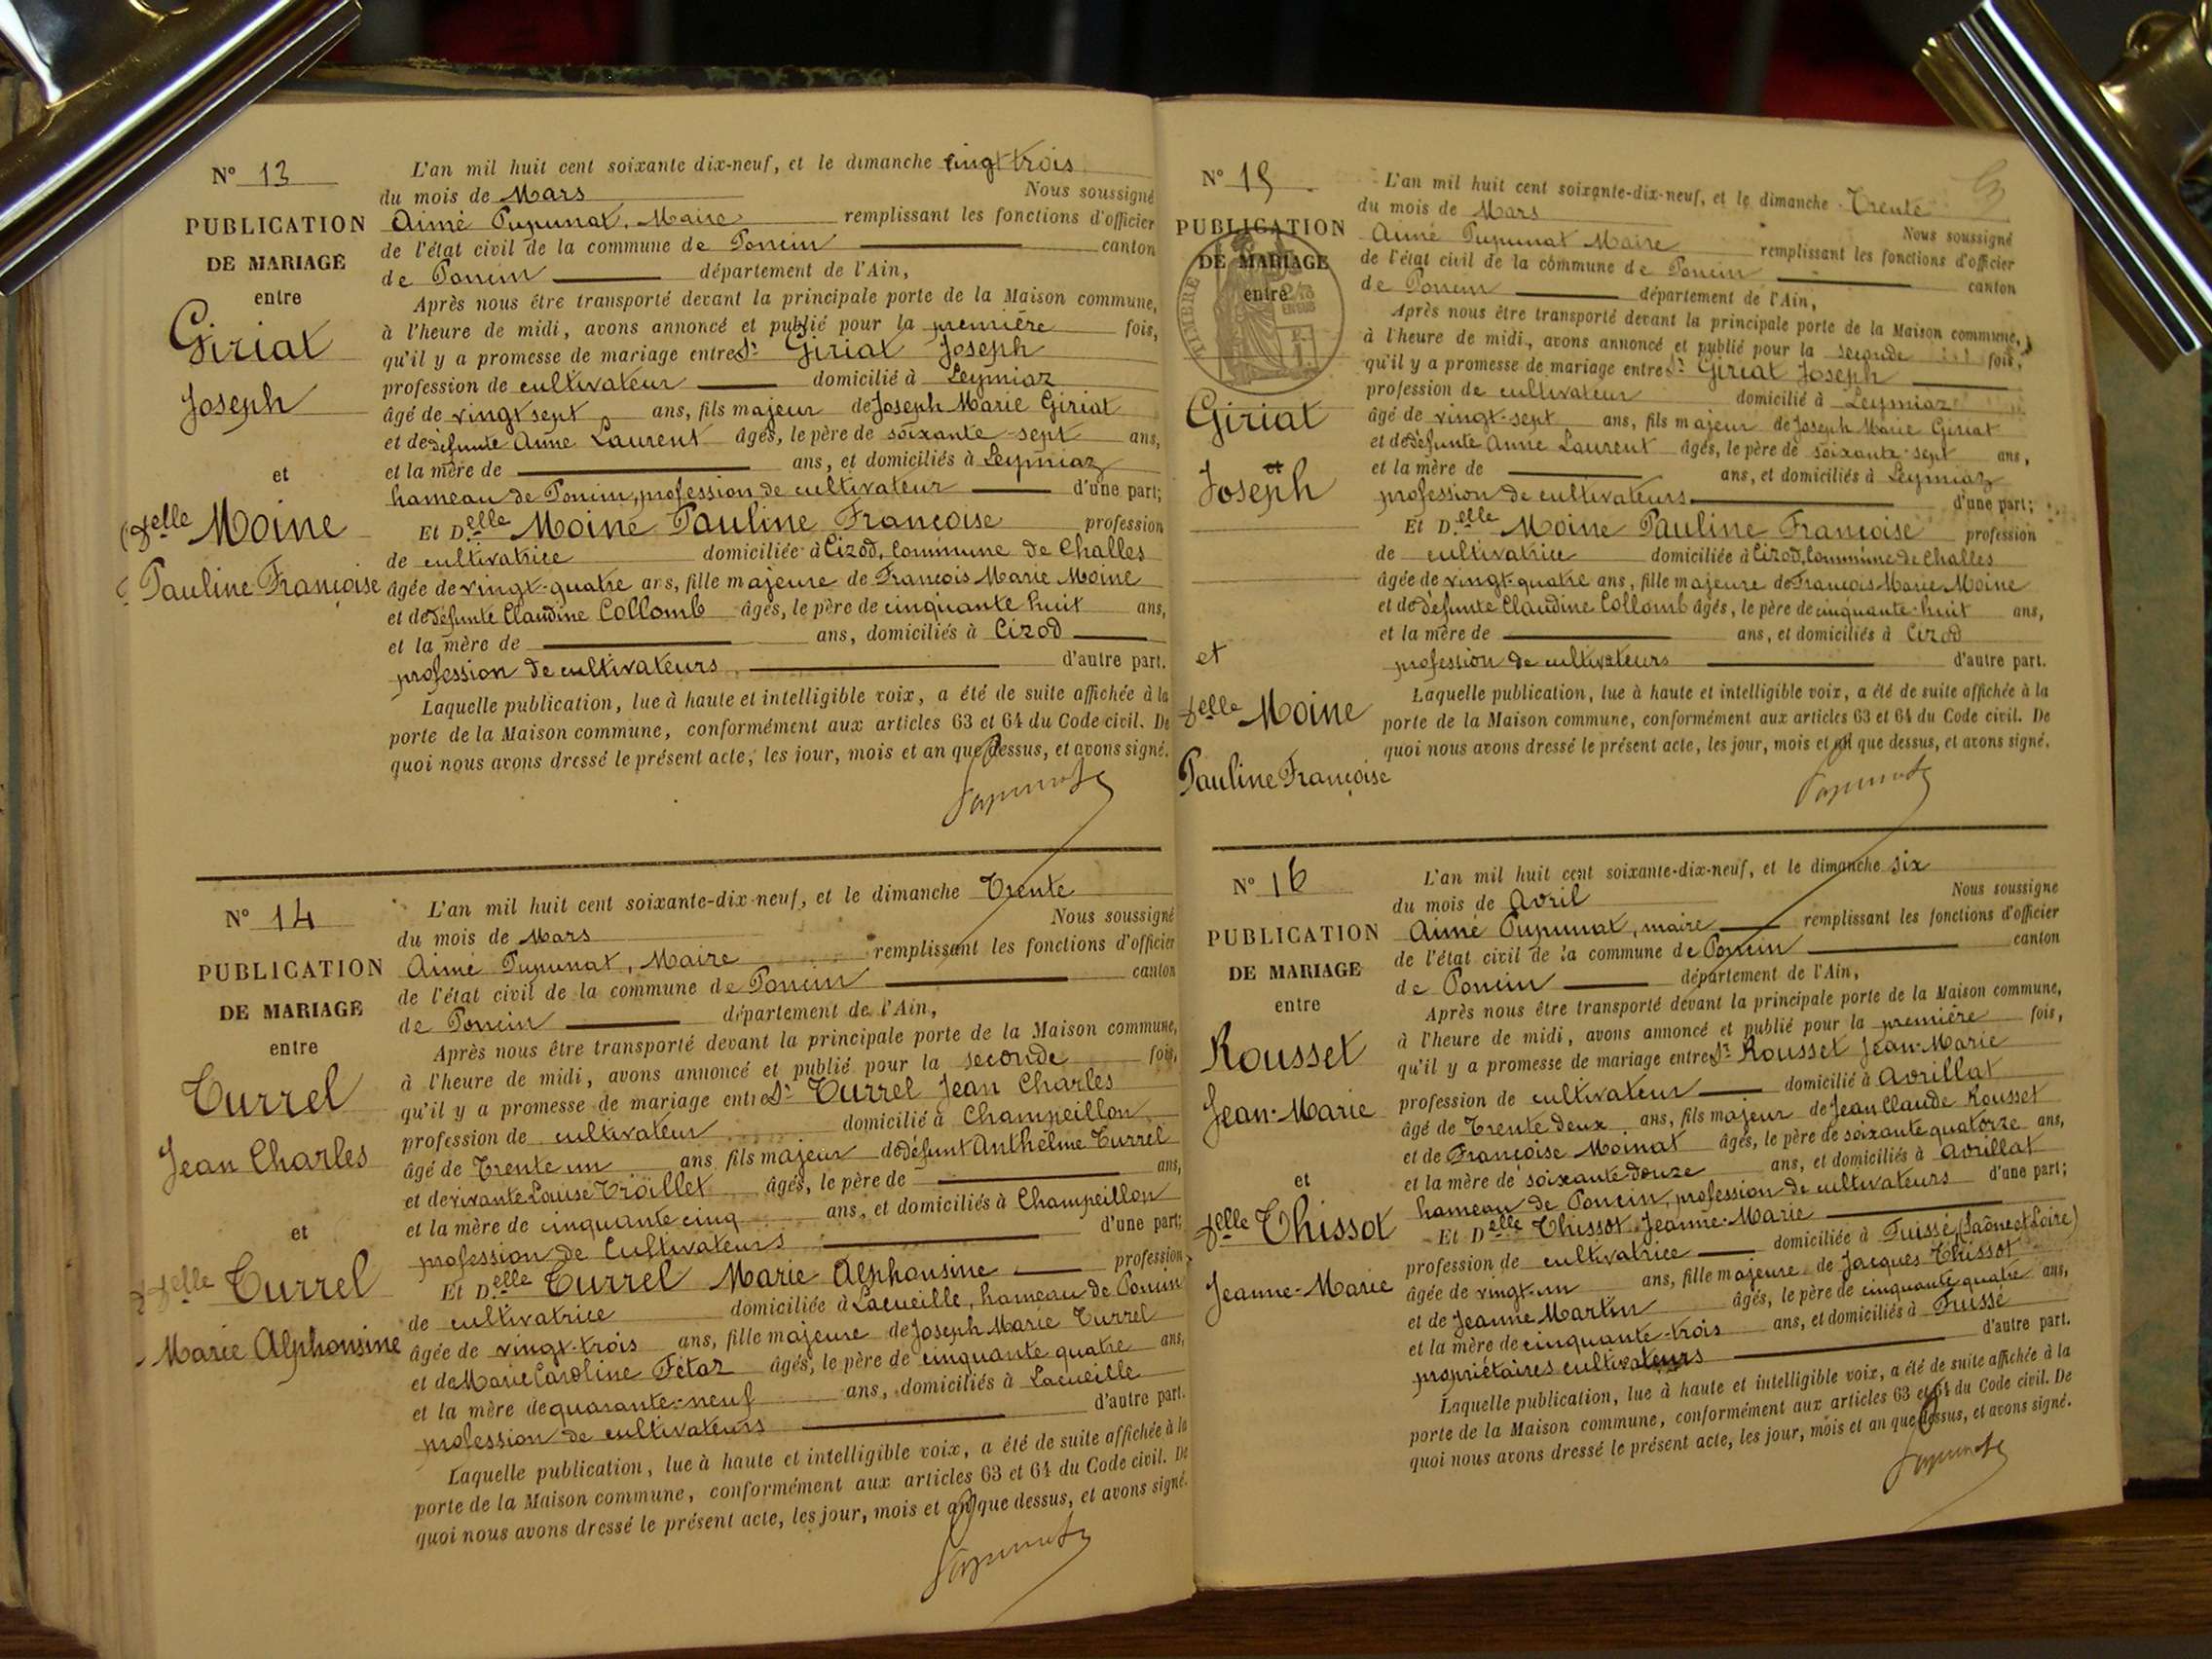 N° 13
PUBLICATION
DE MARIAGE
entre
Giriat
Joseph
et
Delle Moine
Pauline Françoise
L'an mil huit cent soixante dix-neuf, et le dimanche vingt trois
du mois de Mars Nous soussigné
Aimé Pupunat, Maire remplissant les fonctions d'officier
de l'état civil de la commune de Poncin canton
de Poncin département de l'Ain,
Après nous être transporté devant la principale porte de la Maison commune,
à l'heure de midi, avons annoncé et publié pour la première fois,
qu'il y a promesse de mariage entre Sr Giriat Joseph
profession de cultivateur domicilié à Leymiaz
âgé de vingt sept ans, fils majeur de Joseph Marie Giriat
et de défunte Anne Laurent âgés, le père de soixante-sept ans,
et la mère de ans, et domiciliés à Leymiaz
hameau de Poncin, profession de cultivateur d'une part;
Et Delle Moine Pauline Françoise profession
de cultivatrice domiciliée à Cizod, commune de Challes
âgée de vingt-quatre ans, fille majeure de François Marie Moine
et de défunte Claudine Collomb âgés, le père de cinquante huit ans,
et la mère de ans, domiciliés à Cizod
profession de cultivateurs d'autre part.
Laquelle publication, lue à haute et intelligible voix, a été de suite affichée à la
porte de la Maison commune, conformément aux articles 63 et 64 du Code civil. De
quoi nous avons dressé le présent acte, les jour, mois et an que dessus, et avons signé.
Pupunat
N° 14
PUBLICATION
DE MARIAGE
entre
Turrel
Jean Charles
et
Delle Turrel
Marie Alphonsine
L'an mil huit cent soixante-dix-neuf, et le dimanche Trente
du mois de Mars Nous soussigné
Aimé Pupunat, Maire remplissant les fonctions d'officier
de l'état civil de la commune de Poncin canton
de Poncin département de l'Ain,
Après nous être transporté devant la principale porte de la Maison commune,
à l'heure de midi, avons annoncé et publié pour la seconde fois,
qu'il y a promesse de mariage entre Sr Turrel Jean Charles
profession de cultivateur domicilié à Champeillon
âgé de Trente un ans, fils majeur de défunt Anthelme Turrel
et de vivante Louise Triollet âgés, le père de ans,
et la mère de cinquante cinq ans, et domiciliés à Champeillon
profession de Cultivateurs d'une part;
Et Delle Turrel Marie Alphonsine profession
de cultivatrice domiciliée à Lacueille, hameau de Poncin
âgée de vingt-trois ans, fille majeure de Joseph Marie Turrel
et de Marie Caroline Fétaz âgés, le père de cinquante quatre ans,
et la mère de quarante-neuf ans, domiciliés à Lacueille
profession de cultivateurs d'autre part.
Laquelle publication, lue à haute et intelligible voix, a été de suite affichée à la
porte de la Maison commune, conformément aux articles 63 et 64 du Code civil. De
quoi nous avons dressé le présent acte, les jour, mois et an que dessus, et avons signé.
Pupunat
N° 15
PUBLICATION
DE MARIAGE
entre
TIMBRE
Giriat
et
Joseph
et
Delle Moine
Pauline Françoise
L'an mil huit cent soixante-dix-neuf, et le dimanche Trente
du mois de Mars Nous soussigné
Aimé Pupunat Maire remplissant les fonctions d'officier
de l'état civil de la commune de Poncin canton
de Poncin département de l'Ain,
Après nous être transporté devant la principale porte de la Maison commune,
à l'heure de midi, avons annoncé et publié pour la seconde fois,
qu'il y a promesse de mariage entre Sr Giriat Joseph
profession de cultivateur domicilié à Leymiaz
âgé de vingt-sept ans, fils majeur de Joseph Marie Giriat
et de défunte Anne Laurent âgés, le père de soixante-sept ans,
et la mère de ans, et domiciliés à Leymiaz
profession de cultivateurs d'une part;
Et Delle Moine Pauline Françoise profession
de cultivatrice domiciliée à Cizod, commune de Challes
âgée de vingt-quatre ans, fille majeure de François Marie Moine
et de défunte Claudine Collomb âgés, le père de cinquante-huit ans,
et la mère de ans, et domiciliés à Cizod
profession de cultivateurs d'autre part.
Laquelle publication, lue à haute et intelligible voix, a été de suite affichée à la
porte de la Maison commune, conformément aux articles 63 et 64 du Code civil. De
quoi nous avons dressé le présent acte, les jour, mois et an que dessus, et avons signé.
Pupunat
N° 16
PUBLICATION
DE MARIAGE
entre
Rousset
Jean-Marie
et
Delle Thissot
Jeanne-Marie
L'an mil huit cent soixante-dix-neuf, et le dimanche six
du mois de Avril Nous soussigné
Aimé Pupunat, maire remplissant les fonctions d'officier
de l'état civil de la commune de Poncin canton
de Poncin département de l'Ain,
Après nous être transporté devant la principale porte de la Maison commune,
à l'heure de midi, avons annoncé et publié pour la première fois,
qu'il y a promesse de mariage entre Sr Rousset Jean-Marie
profession de cultivateur domicilié à Avrillat
âgé de Trente deux ans, fils majeur de Jean Claude Rousset
et de Françoise Moinat âgés, le père de soixante quatorze ans,
et la mère de soixante douze ans, et domiciliés à Avrillat
hameau de Poncin, profession de cultivateurs d'une part;
Et Delle Thissot Jeanne-Marie
profession de cultivatrice domiciliée à Fuissé (Saône et Loire)
âgée de vingt-un ans, fille majeure de Jacques Thissot
et de Jeanne Martin âgés, le père de cinquante quatre ans,
et la mère de cinquante-trois ans, et domiciliés à Fuissé
propriétaires cultivateurs d'autre part.
Laquelle publication, lue à haute et intelligible voix, a été de suite affichée à la
porte de la Maison commune, conformément aux articles 63 et 64 du Code civil. De
quoi nous avons dressé le présent acte, les jour, mois et an que dessus, et avons signé.
Pupunat